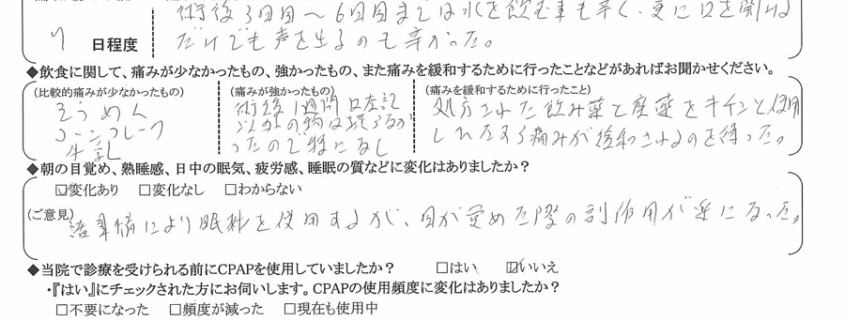 術後3日目～6日目までは水を飲む事も辛く、更に口を開ける
7 日程度
だけでも声を出るのも辛かった。
◆飲食に関して、痛みが少なかったもの、強かったもの、また痛みを緩和するために行ったことなどがあればお聞かせください。
(比較的痛みが少なかったもの)
そうめん
コーンフレーク
牛乳
(痛みが強かったもの)
術後1週間は左記
以外の物は
ったので特になし
(痛みを緩和するために行ったこと)
処方された飲み薬と座薬をキチンと使用
したまる痛みが緩和されるのを待った。
◆朝の目覚め、熟睡感、日中の眠気、疲労感、睡眠の質などに変化はありましたか？
☑変化あり □変化なし □わからない
(ご意見)
諸事情により眠剤を使用するが、目が覚めた際の副作用が楽になった。
◆当院で診療を受けられる前にCPAPを使用していましたか？ □はい ☑いいえ
・『はい』にチェックされた方にお伺いします。CPAPの使用頻度に変化はありましたか？
□不要になった □頻度が減った □現在も使用中